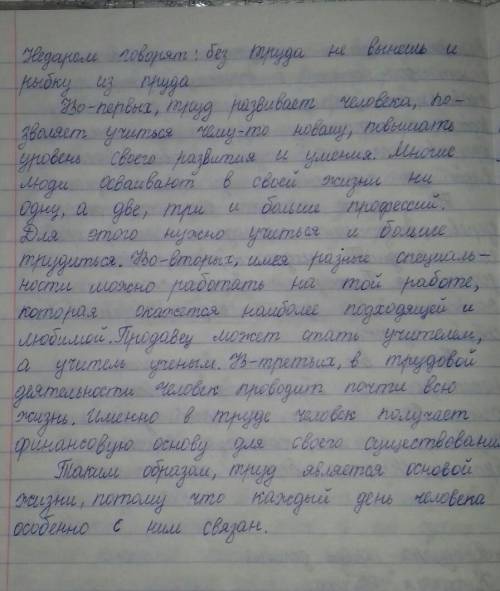 Недаром говорят: без труда не вынешь и
рыбку из пруда
Во-первых, труд развивает человека, по-
зволяет учиться чему-то новому, повышать
уровень своего развития и умения. Многие
люди осваивают в своей жизни ни
одну, а две, три и больше профессий.
Для этого нужно учиться и больше
трудиться. Во-вторых, имея разные специаль-
ности можно работать на той работе,
которая окажется наиболее подходящей и
любимой. Продавец может стать учителем,
а учитель ученым. В-третьих, в трудовой
деятельности человек проводит почти всю
жизнь. Именно в труде человек получает
финансовую основу для своего существовани
Таким образом, труд является основой
жизни, потому что каждый день человека
особенно с ним связан.